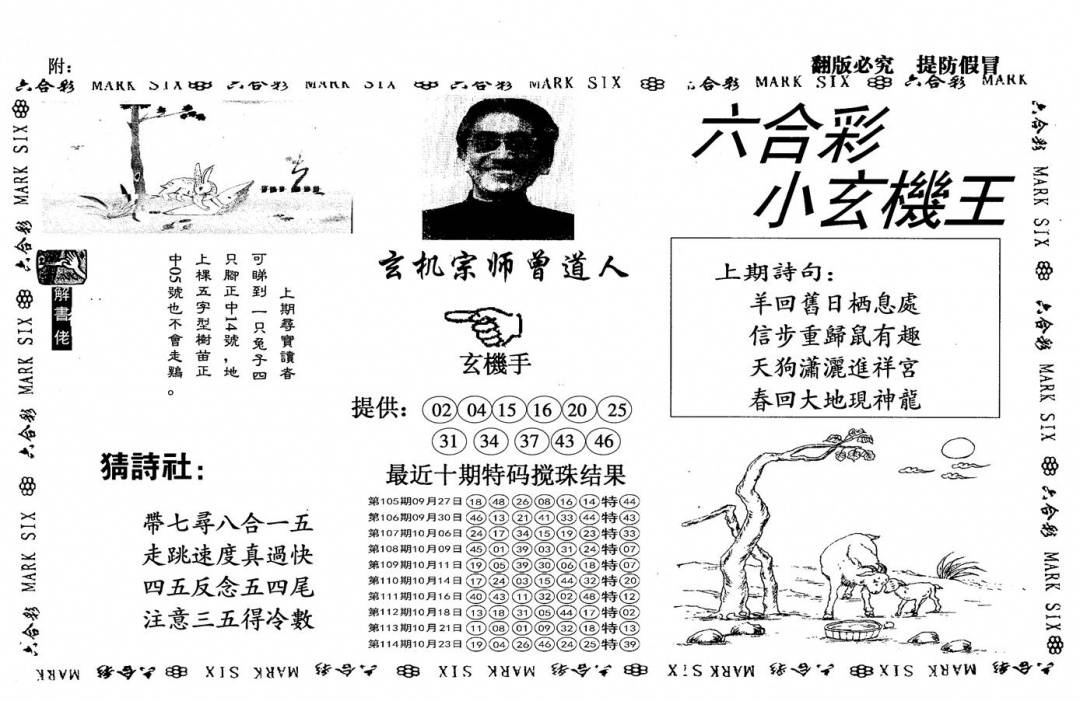 附：
翻版必究 提防假冒
六合彩 MARK SIX 六合彩 MARK SIX 六合彩 MARK SIX 六合彩 MARK SIX 六合彩 MARK
六合彩
小玄機王
玄机宗师曾道人
玄機手
提供：02 04 15 16 20 25
31 34 37 43 46
解書佬
上期尋寶讀者
可睇到一只兔子四
只腳正中14號，地
上棵五字型樹苗正
中05號也不會走鷄。
猜詩社：
帶七尋八合一五
走跳速度真過快
四五反念五四尾
注意三五得冷數
最近十期特码搅珠结果
第105期09月27日 18 48 26 08 16 14 特 44
第106期09月30日 46 13 21 41 33 44 特 43
第107期10月06日 24 17 34 15 19 23 特 33
第108期10月09日 45 01 39 03 31 24 特 07
第109期10月11日 19 05 39 30 06 18 特 07
第110期10月14日 17 24 03 15 44 32 特 20
第111期10月16日 40 43 11 32 02 48 特 12
第112期10月18日 13 18 31 05 44 17 特 02
第113期10月21日 11 08 01 09 32 18 特 13
第114期10月23日 19 04 26 46 24 25 特 39
上期詩句：
羊回舊日栖息處
信步重歸鼠有趣
天狗瀟灑進祥宮
春回大地現神龍
六合彩 MARK SIX 六合彩 MARK SIX 六合彩 MARK SIX
六合彩 MARK SIX 六合彩 MARK SIX 六合彩 MARK SIX 六合彩
MARK 六合彩 MARK SIX 六合彩 MARK SIX 六合彩 MARK SIX 六合彩 MARK SIX 六合彩